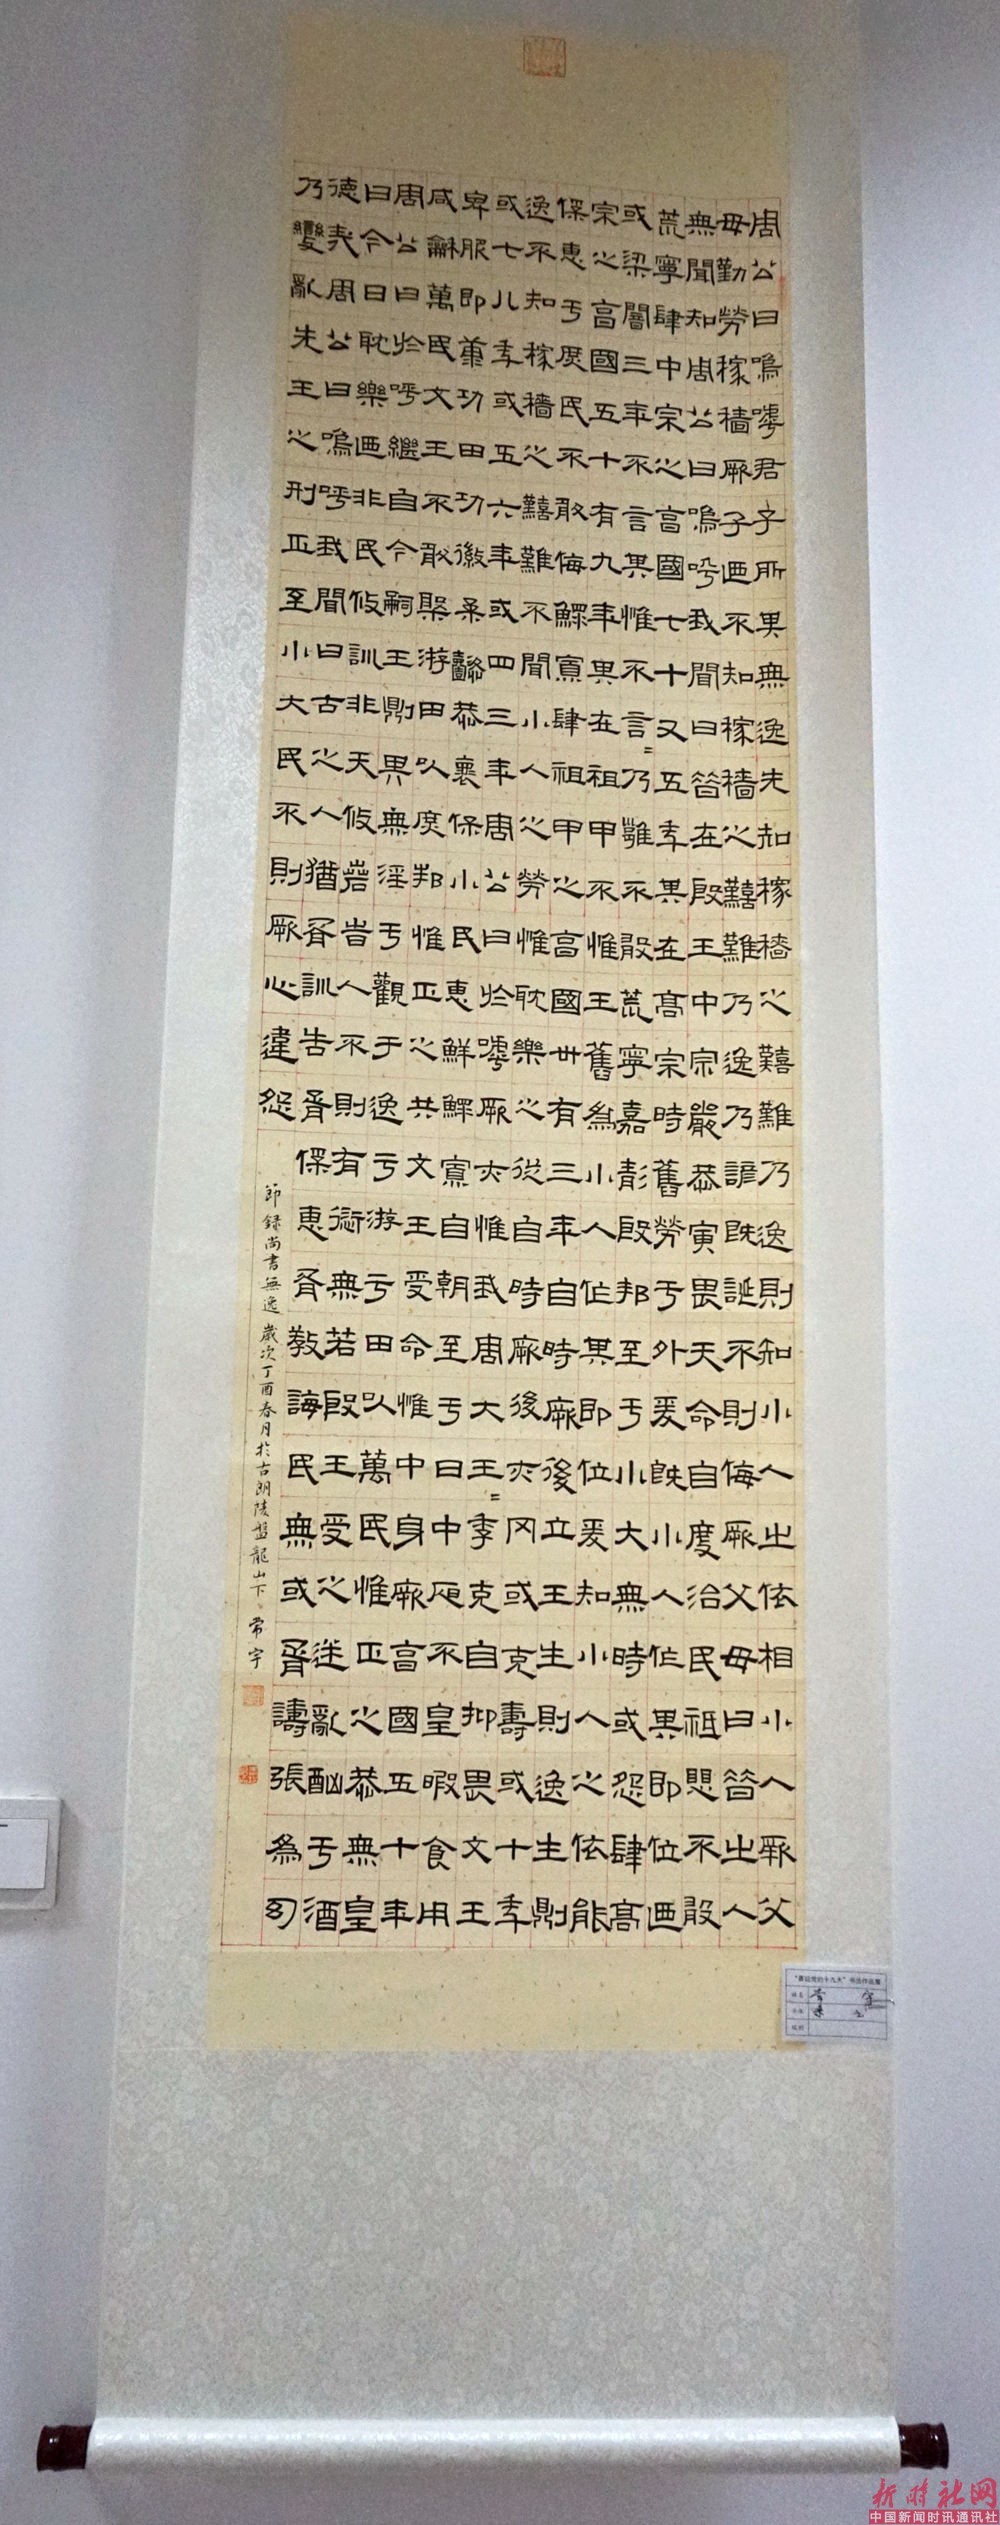 周公曰嗚嘑君子所其無逸先知稼穡之艱難乃逸則知小人之依相小人厥父
母勤勞稼穡厥子迺不知稼穡之艱難乃逸乃諺既誕不則侮厥父母曰昔之人
無聞知周公曰嗚呼我聞曰昔在殷王中宗嚴恭寅畏天命自度治民祗懼不敢
荒寧肆中宗之享國七十又五年其在高宗時舊勞于外爰既小人作其即位迺
或梁闇三年不言其惟不言=乃雝不敢荒寧嘉靖殷邦至于小大無時或怨肆高
宗之享國五十有九年其在祖甲不惟王舊為小人作其即位爰知小人之依能
保惠于庶民不敢侮鰥寡肆祖甲之享國卅有三年自時厥後立王生則逸生則
逸不知稼穡之艱難不聞小人之勞惟耽樂之從自時厥後亦罔或克壽或十年
或七八年或五六年或四三年周公曰於嘑厥亦惟我周大王=季克自抑畏文王
卑服即康功田功徽柔懿恭襄保小民惠鮮鰥寡自朝至于日中昃不皇暇食用
咸龢萬民文王不敢槃游田以庶邦惟正之共文王受命惟中身厥享國五十年
周公曰於呼繼自今嗣王則其無淫于觀于逸于游于田以萬民惟正之恭無皇
曰今日耽樂迺非民攸訓非天攸若時人不則有愆無若殷王受之迷亂酗于酒
德哉周公曰嗚呼我聞曰古之人猶胥訓告胥保惠胥教誨民無或胥譸張為幻
乃變亂先王之刑正至小大民不則厥心違怨
節録尚書無逸歲次丁酉春月於古朗陵盤龍山下常宇
“喜迎党的十九大”书法作品展
姓名 常宇
书体 隶书
组别
新时社网
中国新闻时讯通讯社